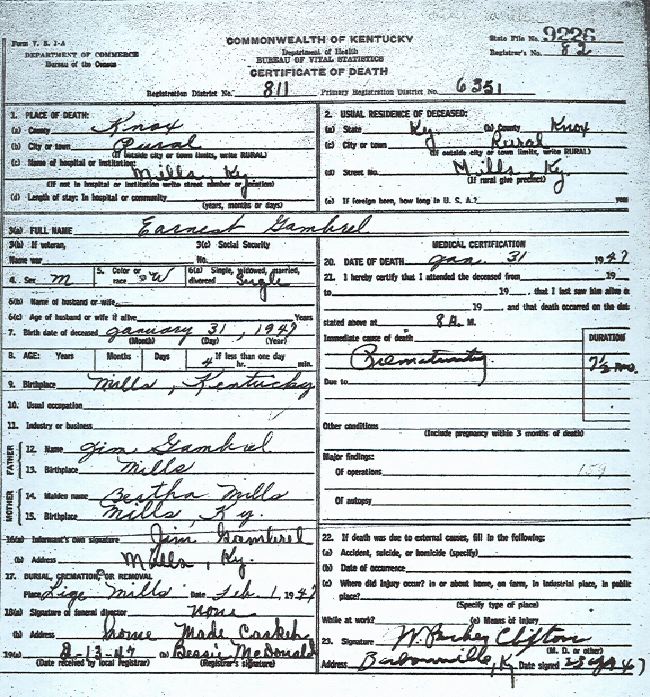 Form V. S. 1-A
DEPARTMENT OF COMMERCE
Bureau of the Census
COMMONWEALTH OF KENTUCKY
Department of Health
BUREAU OF VITAL STATISTICS
CERTIFICATE OF DEATH
State File No. 9226
Registrar's No. 82
Registration District No. 811 Primary Registration District No. 6351
1. PLACE OF DEATH:
(a) County Knox
(b) City or town Rural
(If outside city or town limits, write RURAL)
(c) Name of hospital or institution:
Mills, Ky
(If not in hospital or institution write street number or location)
(d) Length of stay: In hospital or community
(years, months or days)
2. USUAL RESIDENCE OF DECEASED:
(a) State Ky. (b) County Knox
(c) City or town Rural
(If outside city or town limits, write RURAL)
(d) Street No. Mills, Ky.
(If rural give precinct)
(e) If foreign born, how long in U. S. A.? years
3(a) FULL NAME Earnest Gambrel
3(b) If veteran,
Name war
3(c) Social Security
No.
4. Sex M
5. Color or
race W
6(a) Single, widowed, married,
divorced Single
6(b) Name of husband or wife
6(c) Age of husband or wife if alive Years
7. Birth date of deceased January 31, 1947
(Month) (Day) (Year)
8. AGE: Years Months Days If less than one day
4 hr. min.
9. Birthplace Mills, Kentucky
10. Usual occupation
11. Industry or business
FATHER
12. Name Jim Gambrel
13. Birthplace Mills
MOTHER
14. Maiden name Bertha Mills
15. Birthplace Mills, Ky.
16(a) Informant's own signature Jim Gambrel
(b) Address Mills, Ky.
17. BURIAL, CREMATION, OR REMOVAL
Place Lige Mills Date Feb. 1, 1947
18(a) Signature of funeral director None
(b) Address home Made Casket
19(a) 8-13-47 (b) Bessie McDonald
(Date received by local Registrar) (Registrar's signature)
MEDICAL CERTIFICATION
20. DATE OF DEATH Jan. 31 1947
21. I hereby certify that I attended the deceased from 19
to 19 that I last saw him alive on
19 and that death occurred on the date
stated above at 8 A. M.
Immediate cause of death
Prematurity
DURATION
7½ mos.
Due to
Other conditions
(Include pregnancy within 3 months of death)
Major findings:
Of operations 159
Of autopsy
22. If death was due to external causes, fill in the following:
(a) Accident, suicide, or homicide (specify)
(b) Date of occurrence
(c) Where did injury occur? in or about home, on farm, in industrial place, in public
place?
(Specify type of place)
While at work? (e) Means of injury
23. Signature W. Clifton
(M. D. or other)
Address Barbourville, K Date signed 47